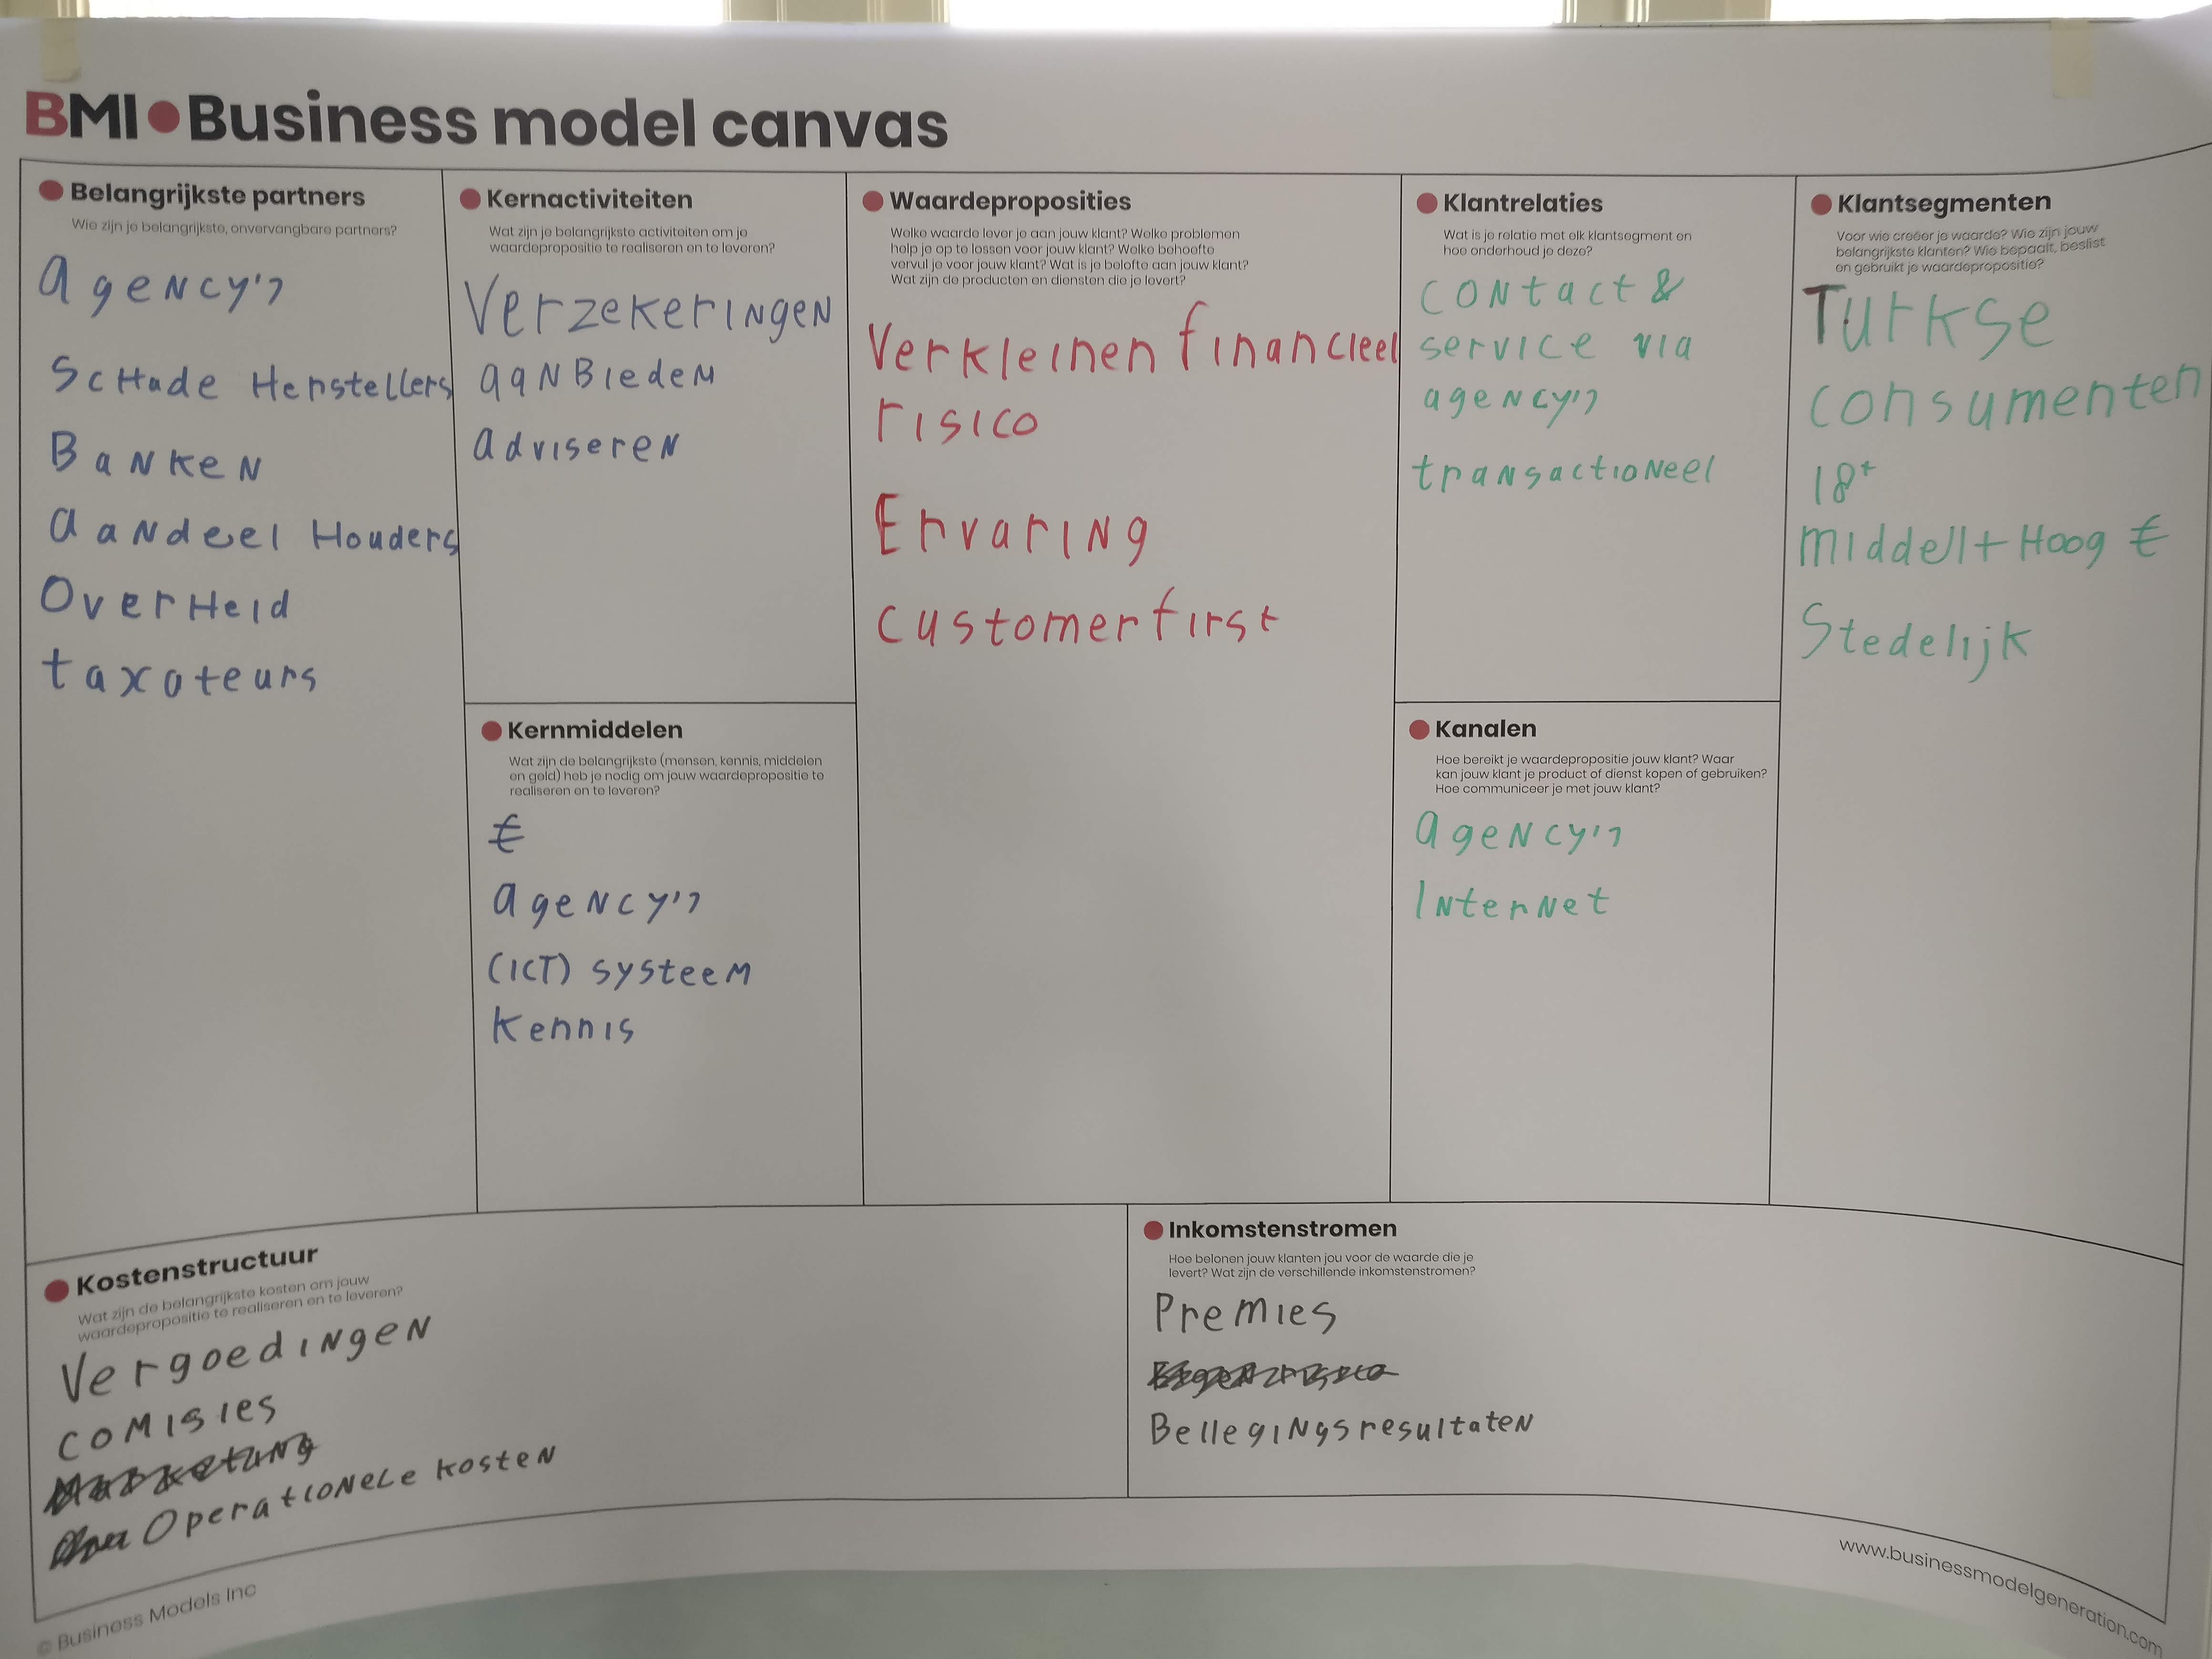 BMI Business model canvas
Belangrijkste partners
Wie zijn je belangrijkste, onvervangbare partners?
agency's
Schade Herstellers
Banken
aandeel Houders
Overheid
taxateurs
Kernactiviteiten
Wat zijn je belangrijkste activiteiten om je
waardepropositie te realiseren en te leveren?
Verzekeringen
aanbieden
adviseren
Kernmiddelen
Wat zijn de belangrijkste (mensen, kennis, middelen
en geld) heb je nodig om jouw waardepropositie te
realiseren en te leveren?
€
agency's
(ICT) systeem
kennis
Waardeproposities
Welke waarde lever je aan jouw klant? Welke problemen
help je op te lossen voor jouw klant? Welke behoefte
vervul je voor jouw klant? Wat is je belofte aan jouw klant?
Wat zijn de producten en diensten die je levert?
Verkleinen financieel
risico
Ervaring
customer first
Klantrelaties
Wat is je relatie met elk klantsegment en
hoe onderhoud je deze?
contact &
service via
agency's
transactioneel
Kanalen
Hoe bereikt je waardepropositie jouw klant? Waar
kan jouw klant je product of dienst kopen of gebruiken?
Hoe communiceer je met jouw klant?
agency's
Internet
Klantsegmenten
Voor wie creëer je waarde? Wie zijn jouw
belangrijkste klanten? Wie bepaalt, beslist
en gebruikt je waardepropositie?
Turkse
consumenten
18+
middell + Hoog €
Stedelijk
Kostenstructuur
Wat zijn de belangrijkste kosten om jouw
waardepropositie te realiseren en te leveren?
Vergoedingen
comisies
Marketing
Operationele kosten
Inkomstenstromen
Hoe belonen jouw klanten jou voor de waarde die je
levert? Wat zijn de verschillende inkomstenstromen?
Premies
Bellegingsresultaten
© Business Models Inc
www.businessmodelgeneration.com